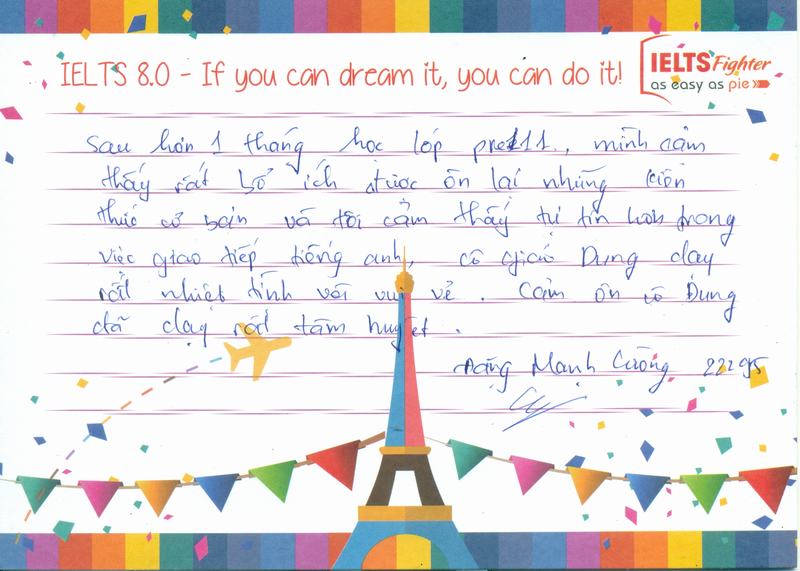 IELTS 8.0 - If you can dream it, you can do it!
IELTS Fighter
as easy as pie
Sau hơn 1 tháng học lớp pre11, mình cảm
thấy rất bổ ích được ôn lại những kiến
thức cơ bản và tôi cảm thấy tự tin hơn trong
việc giao tiếp tiếng anh, cô giáo Dung dạy
rất nhiệt tình với vui vẻ. Cảm ơn cô Dung
đã dạy rất tâm huyết.
Đặng Mạnh Cường